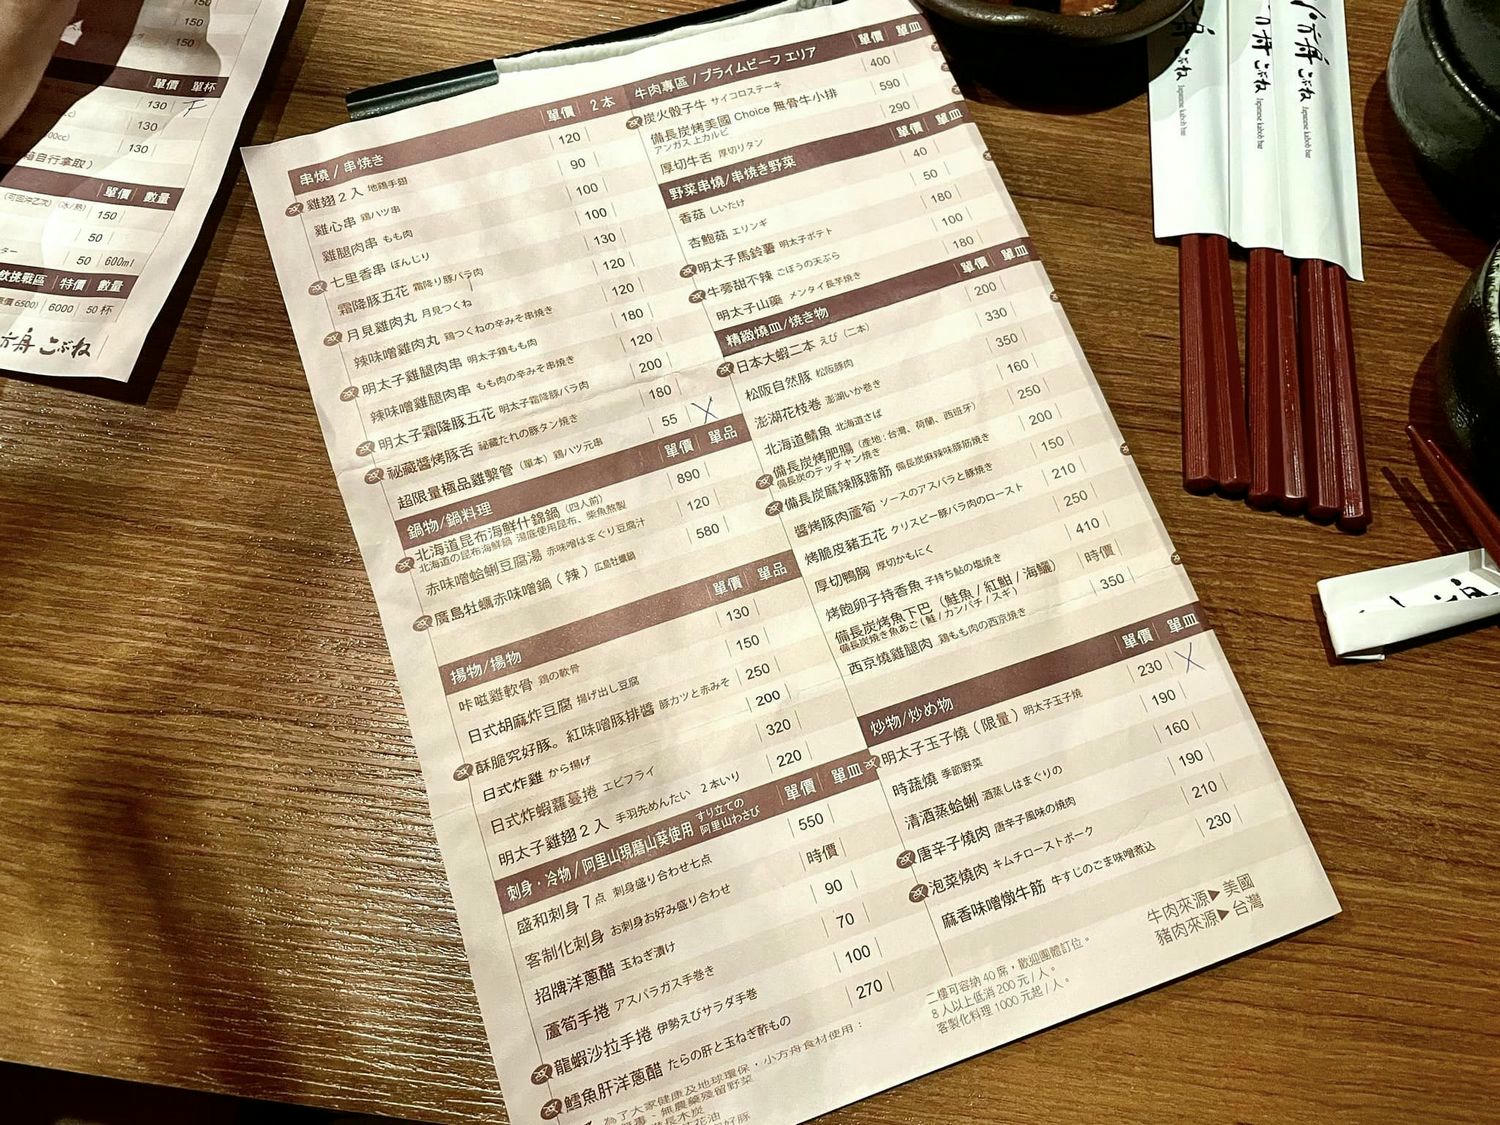 串燒 / 串焼き 單價 2本
雞翅2入 地鶏手翅 120
雞心串 鶏ハツ串 90
雞腿肉串 もも肉 100
七里香串 ぼんじり 100
霜降豚五花 霜降り豚バラ肉 130
月見雞肉丸 月見つくね 120
辣味噌雞肉丸 鶏つくねの辛みそ串焼き 120
明太子雞腿肉串 明太子鶏もも肉 180
辣味噌雞腿肉串 もも肉の辛みそ串焼き 120
明太子霜降豚五花 明太子霜降豚バラ肉 200
祕藏醬烤豚舌 祕藏たれの豚タン焼き 180
超限量極品雞繫管(單本) 鶏ハツ元串 55
鍋物/鍋料理 單價 單品
北海道昆布海鮮什錦鍋(四人前) 890
北海道の昆布海鮮鍋 湯底使用昆布、柴魚熬製
赤味噌蛤蜊豆腐湯 赤味噌はまぐり豆腐汁 120
廣島牡蠣赤味噌鍋(辣) 広島牡蠣鍋 580
揚物/揚物 單價 單品
咔嗞雞軟骨 鶏の軟骨 130
日式胡麻炸豆腐 揚げ出し豆腐 150
酥脆究好豚。紅味噌豚排醬 豚カツと赤みそ 250
日式炸雞 から揚げ 200
日式炸蝦蘿蔓捲 エビフライ 320
明太子雞翅2入 手羽先めんたい 2本いり 220
刺身・冷物/阿里山現磨山葵使用 すり立ての阿里山わさび 單價 單皿
盛和刺身7点 刺身盛り合わせ七点 550
客制化刺身 お刺身お好み盛り合わせ 時價
招牌洋蔥醋 玉ねぎ漬け 90
蘆筍手捲 アスパラガス手巻き 70
龍蝦沙拉手捲 伊勢えびサラダ手巻 100
鱈魚肝洋蔥醋 たらの肝と玉ねぎ酢もの 270
為了大家健康及地球環保,小方舟食材使用:
無農藥殘留野菜
牛肉專區 / プライムビーフ エリア 單價 單皿
炭火骰子牛 サイコロステーキ 400
備長炭烤美國 Choice 無骨牛小排 590
アンガス上カルビ
厚切牛舌 厚切りタン 290
野菜串燒/串焼き野菜 單價 單皿
香菇 しいたけ 40
杏鮑菇 エリンギ 50
明太子馬鈴薯 明太子ポテト 180
牛蒡甜不辣 ごぼうの天ぷら 100
明太子山藥 メンタイ長芋焼き 180
精緻燒皿/焼き物 單價 單皿
日本大蝦二本 えび(二本) 200
松阪自然豚 松阪豚肉 330
澎湖花枝卷 澎湖いか巻き 350
北海道鯖魚 北海道さば 160
備長炭烤肥腸(產地:台灣、荷蘭、西班牙) 250
備長炭のテッチャン焼き
備長炭麻辣豚蹄筋 備長炭麻辣味豚筋焼き 200
醬烤豚肉蘆筍 ソースのアスパラと豚焼き 150
烤脆皮豬五花 クリスピー豚バラ肉のロースト 210
厚切鴨胸 厚切かもにく 250
烤飽卵子持香魚 子持ち鮎の塩焼き 410
備長炭烤魚下巴(鮭魚/紅魽/海鱺) 時價
備長炭焼き魚あご(鮭/カンパチ/スギ)
西京燒雞腿肉 鶏もも肉の西京焼き 350
炒物/炒め物 單價 單皿
明太子玉子燒(限量) 明太子玉子焼 230
時蔬燒 季節野菜 190
清酒蒸蛤蜊 酒蒸しはまぐりの 160
唐辛子燒肉 唐辛子風味の焼肉 190
泡菜燒肉 キムチローストポーク 210
麻香味噌燉牛筋 牛すじのごま味噌煮込 230
牛肉來源▶美國
豬肉來源▶台灣
二樓可容納40席,歡迎團體訂位。
8人以上低消200元/人。
客製化料理1000元起/人。
150
150
單價 單杯
130
130
130
自行拿取)
單價 數量
(可回沖乙次)(冰/熱) 150
50
50 600ml
飲挑戰區 特價 數量
6500) 6000 50杯
方舟 こぶね
こぶね
Japanese kabob bar
方舟 こぶね
Japanese kabob bar
方舟 こぶね
Japanese kabob bar